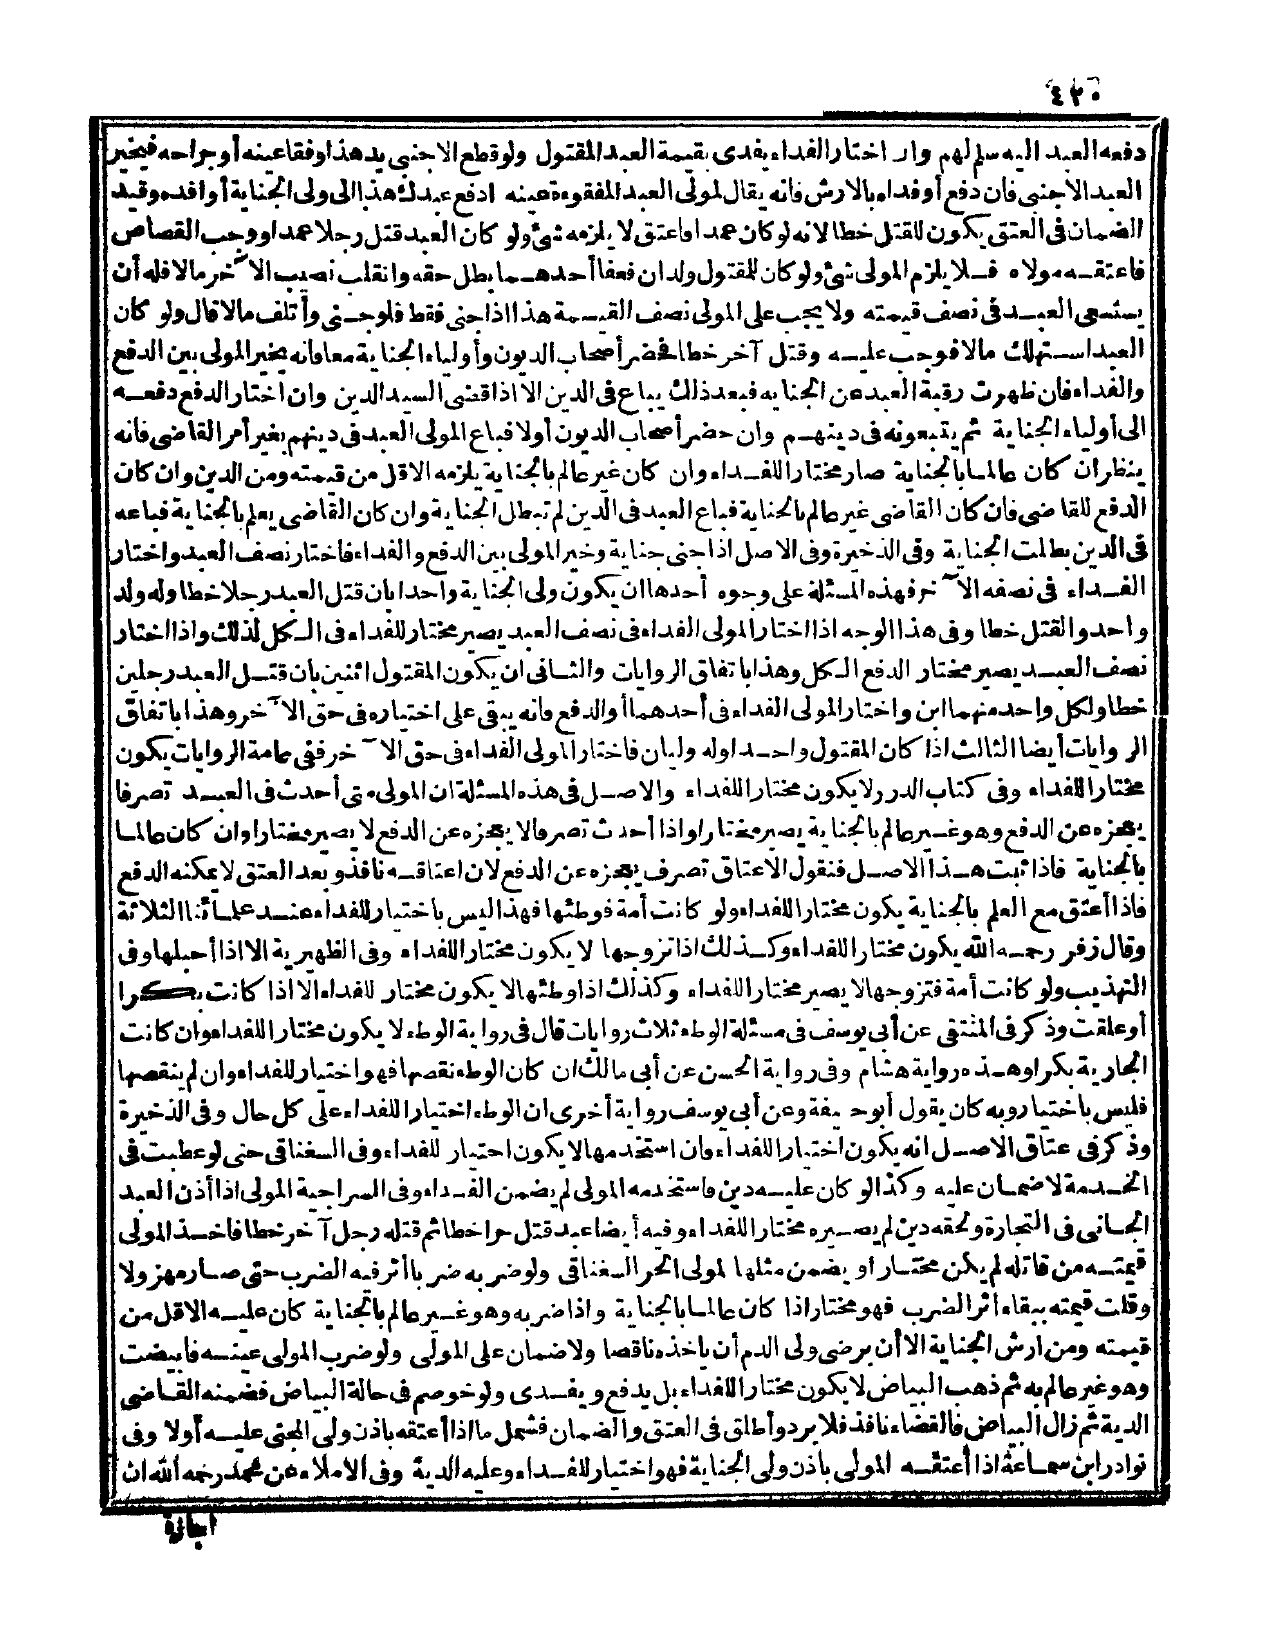 ٤٢٠
دفعه العبد اليه سلم لهم وان اختار الفداء يفدى بقيمة العبد المقتول ولو قطع الاجنبى يد هذا وفقا عينه أو جراحه فيخير
العبد الاجنبى فان دفع أو فداء بالارش فانه يقال لمولى العبد المفقوءة عينه ادفع عبدك هذا الى ولى الجناية أو افده وقيد
الضمان فى العتق يكون للقتل خطا لانه لو كان عمدا فاعتق لا يلزمه شئ ولو كان العبد قتل رجلا عمدا ووجب القصاص
فاعتقه مولاه فلا يلزم المولى شئ ولو كان للمقتول ولدان فعفا أحدهما بطل حقه وانقلب نصيب الآخر مالا فله أن
يستسعى العبد فى نصف قيمته ولا يجب على المولى نصف القيمة هذا اذا جنى فقط فلو جنى وأتلف مالا قال ولو كان
العبد استهلك مالا فوجب عليه وقتل آخر خطا فحضر أصحاب الديون وأولياء الجناية معا فانه يخير المولى بين الدفع
والفداء فان ظهرت رقبة العبد عن الجناية فبعد ذلك يباع فى الدين الا اذا قضى السيد الدين وان اختار الدفع دفعه
الى أولياء الجناية ثم يتبعونه فى دينهم وان حضر أصحاب الديون أولا فباع المولى العبد فى دينهم بغير أمر القاضى فانه
ينظر ان كان عالما بالجناية صار مختارا للفداء وان كان غير عالم بالجناية يلزمه الاقل من قيمته ومن الدين وان كان
الدفع للقاضى فان كان القاضى غير عالم بالجناية فباع العبد فى الدين لم تبطل الجناية وان كان القاضى يعلم بالجناية فباعه
فى الدين بطلت الجناية وفى الذخيرة وفى الاصل اذا جنى جناية وخير المولى بين الدفع والفداء فاختار نصف العبد واختار
الفداء فى نصفه الآخر فهذه المسئلة على وجوه أحدها ان يكون ولى الجناية واحدا بان قتل العبد رجلا خطا وله ولد
واحد والقتل خطا وفى هذا الوجه اذا اختار المولى الفداء فى نصف العبد يصير مختار للفداء فى الكل لذلك واذا اختار
نصف العبد يصير مختار الدفع الكل وهذا باتفاق الروايات والثانى ان يكون المقتول اثنين بان قتل العبد رجلين
خطا ولكل واحد منهما ابن واختار المولى الفداء فى أحدهما أو الدفع فانه يبقى على اختياره فى حق الآخر وهذا باتفاق
الروايات أيضا الثالث اذا كان المقتول واحدا وله وليان فاختار المولى الفداء فى حق الآخر ففى عامة الروايات يكون
مختارا للفداء وفى كتاب الدرر لا يكون مختارا للفداء والاصل فى هذه المسئلة ان المولى متى أحدث فى العبد تصرفا
يعجزه عن الدفع وهو غير عالم بالجناية يصير مختارا واذا أحدث تصرفا لا يعجزه عن الدفع لا يصير مختارا وان كان عالما
بالجناية فاذا ثبت هذا الاصل فنقول الاعتاق تصرف يعجزه عن الدفع لان اعتاقه نافذ وبعد العتق لا يمكنه الدفع
فاذا أعتق مع العلم بالجناية يكون مختارا للفداء ولو كانت أمة فوطئها فهذا ليس باختيار للفداء عند علمائنا الثلاثة
وقال زفر رحمه الله يكون مختارا للفداء وكذلك اذا تزوجها لا يكون مختارا للفداء وفى الظهيرية الا اذا أحبلها وفى
التهذيب ولو كانت أمة فتزوجها لا يصير مختارا للفداء وكذلك اذا وطئها لا يكون مختار للفداء الا اذا كانت بكرا
أو علقت وذكر فى المنتقى عن أبى يوسف فى مسئلة الوطء ثلاث روايات قال فى رواية الوطء لا يكون مختارا للفداء وان كانت
الجارية بكرا وهذه رواية هشام وفى رواية الحسن عن أبى مالك ان كان الوطء نقصها فهو اختيار للفداء وان لم ينقصها
فليس باختيار وبه كان يقول أبو حنيفة وعن أبى يوسف رواية أخرى ان الوطء اختيارا للفداء على كل حال وفى الذخيرة
وذكر فى عتاق الاصل انه يكون اختيارا للفداء وان استخدمها لا يكون اختيار للفداء وفى السغناقى حتى لو عطبت فى
الخدمة لا ضمان عليه وكذا لو كان عليه دين فاستخدمه المولى لم يضمن الفداء وفى السراجية المولى اذا أذن العبد
الجانى فى التجارة ولحقه دين لم يصيره مختارا للفداء وفيه أيضا عبد قتل حرا خطا ثم قتله رجل آخر خطا فاخذ المولى
قيمته من قاتله لم يكن مختارا و يضمن مثلها لمولى الحر السغناقى ولو ضربه ضربا أثر فيه الضرب حتى صار مهزولا
وقلت قيمته ببقاء أثر الضرب فهو مختار اذا كان عالما بالجناية واذا ضربه وهو غير عالم بالجناية كان عليه الاقل من
قيمته ومن ارش الجناية الا أن يرضى ولى الدم أن ياخذه ناقصا ولا ضمان على المولى ولو ضرب المولى عينه فابيضت
وهو غير عالم به ثم ذهب البياض لا يكون مختارا للفداء بل يدفع ويفدى ولو خوصم فى حالة البياض فضمنه القاضى
الدية ثم زال البياض فالقضاء نافذ فلا يرد وأطلق فى العتق والضمان فشمل ما اذا أعتقه باذن ولى المجنى عليه أولا وفى
نوادر ابن سماعة اذا أعتقه المولى باذن ولى الجناية فهو اختيار للفداء وعليه الدية وفى الاملاء عن محمد رحمه الله ان
اجازة